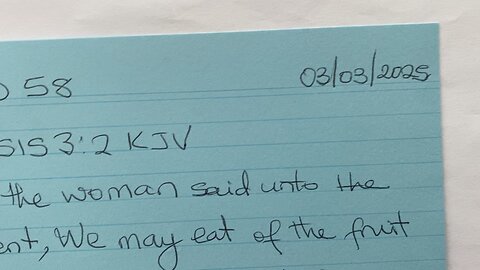 58 03/03/2025
SIS 3:2 KJV
the woman said unto the
ent, We may eat of the fruit